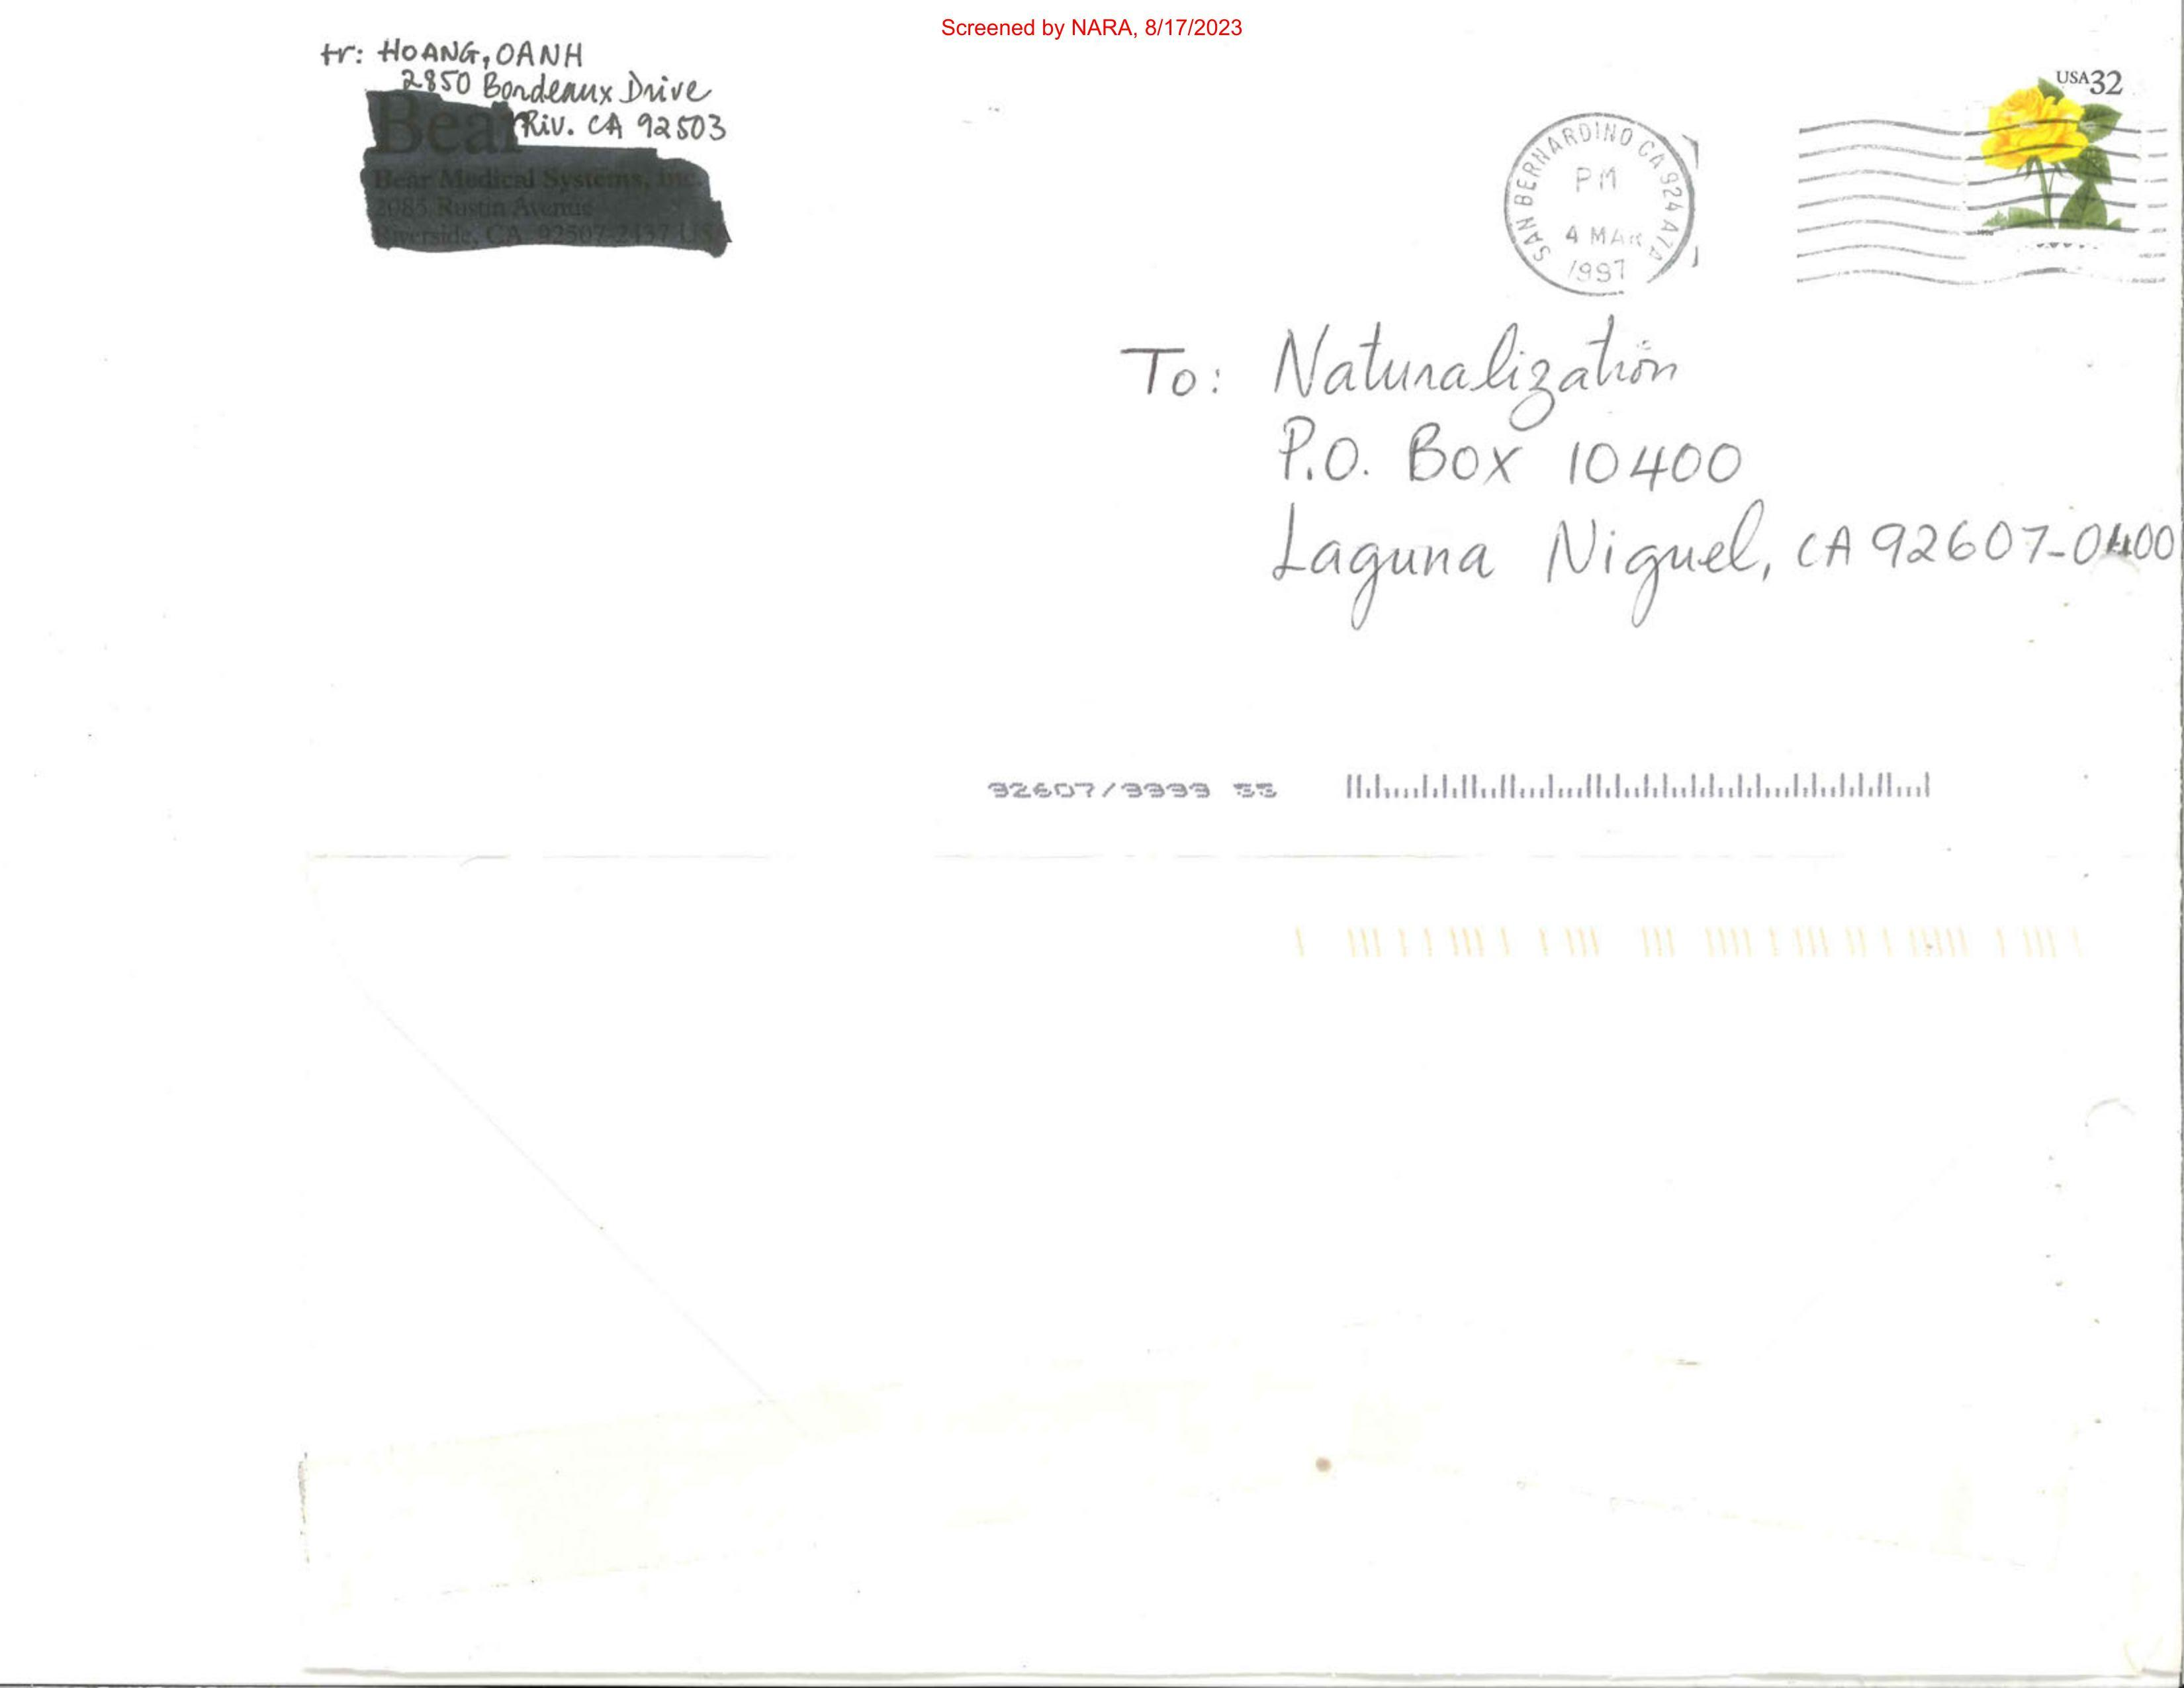 Screened by NARA, 8/17/2023
tr: HOANG, OANH
2850 Bordeaux Drive
Riv. CA 92503
Bear
Bear Medical Systems, Inc.
2085 Rustin Avenue
Riverside, CA 92507
USA 32
SAN BERNARDINO CA 924
PM
4 MAR
1997
To: Naturalization
P.O. Box 10400
Laguna Niguel, CA 92607-0400
92607/9999